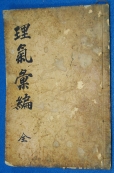 理氣彙編
全